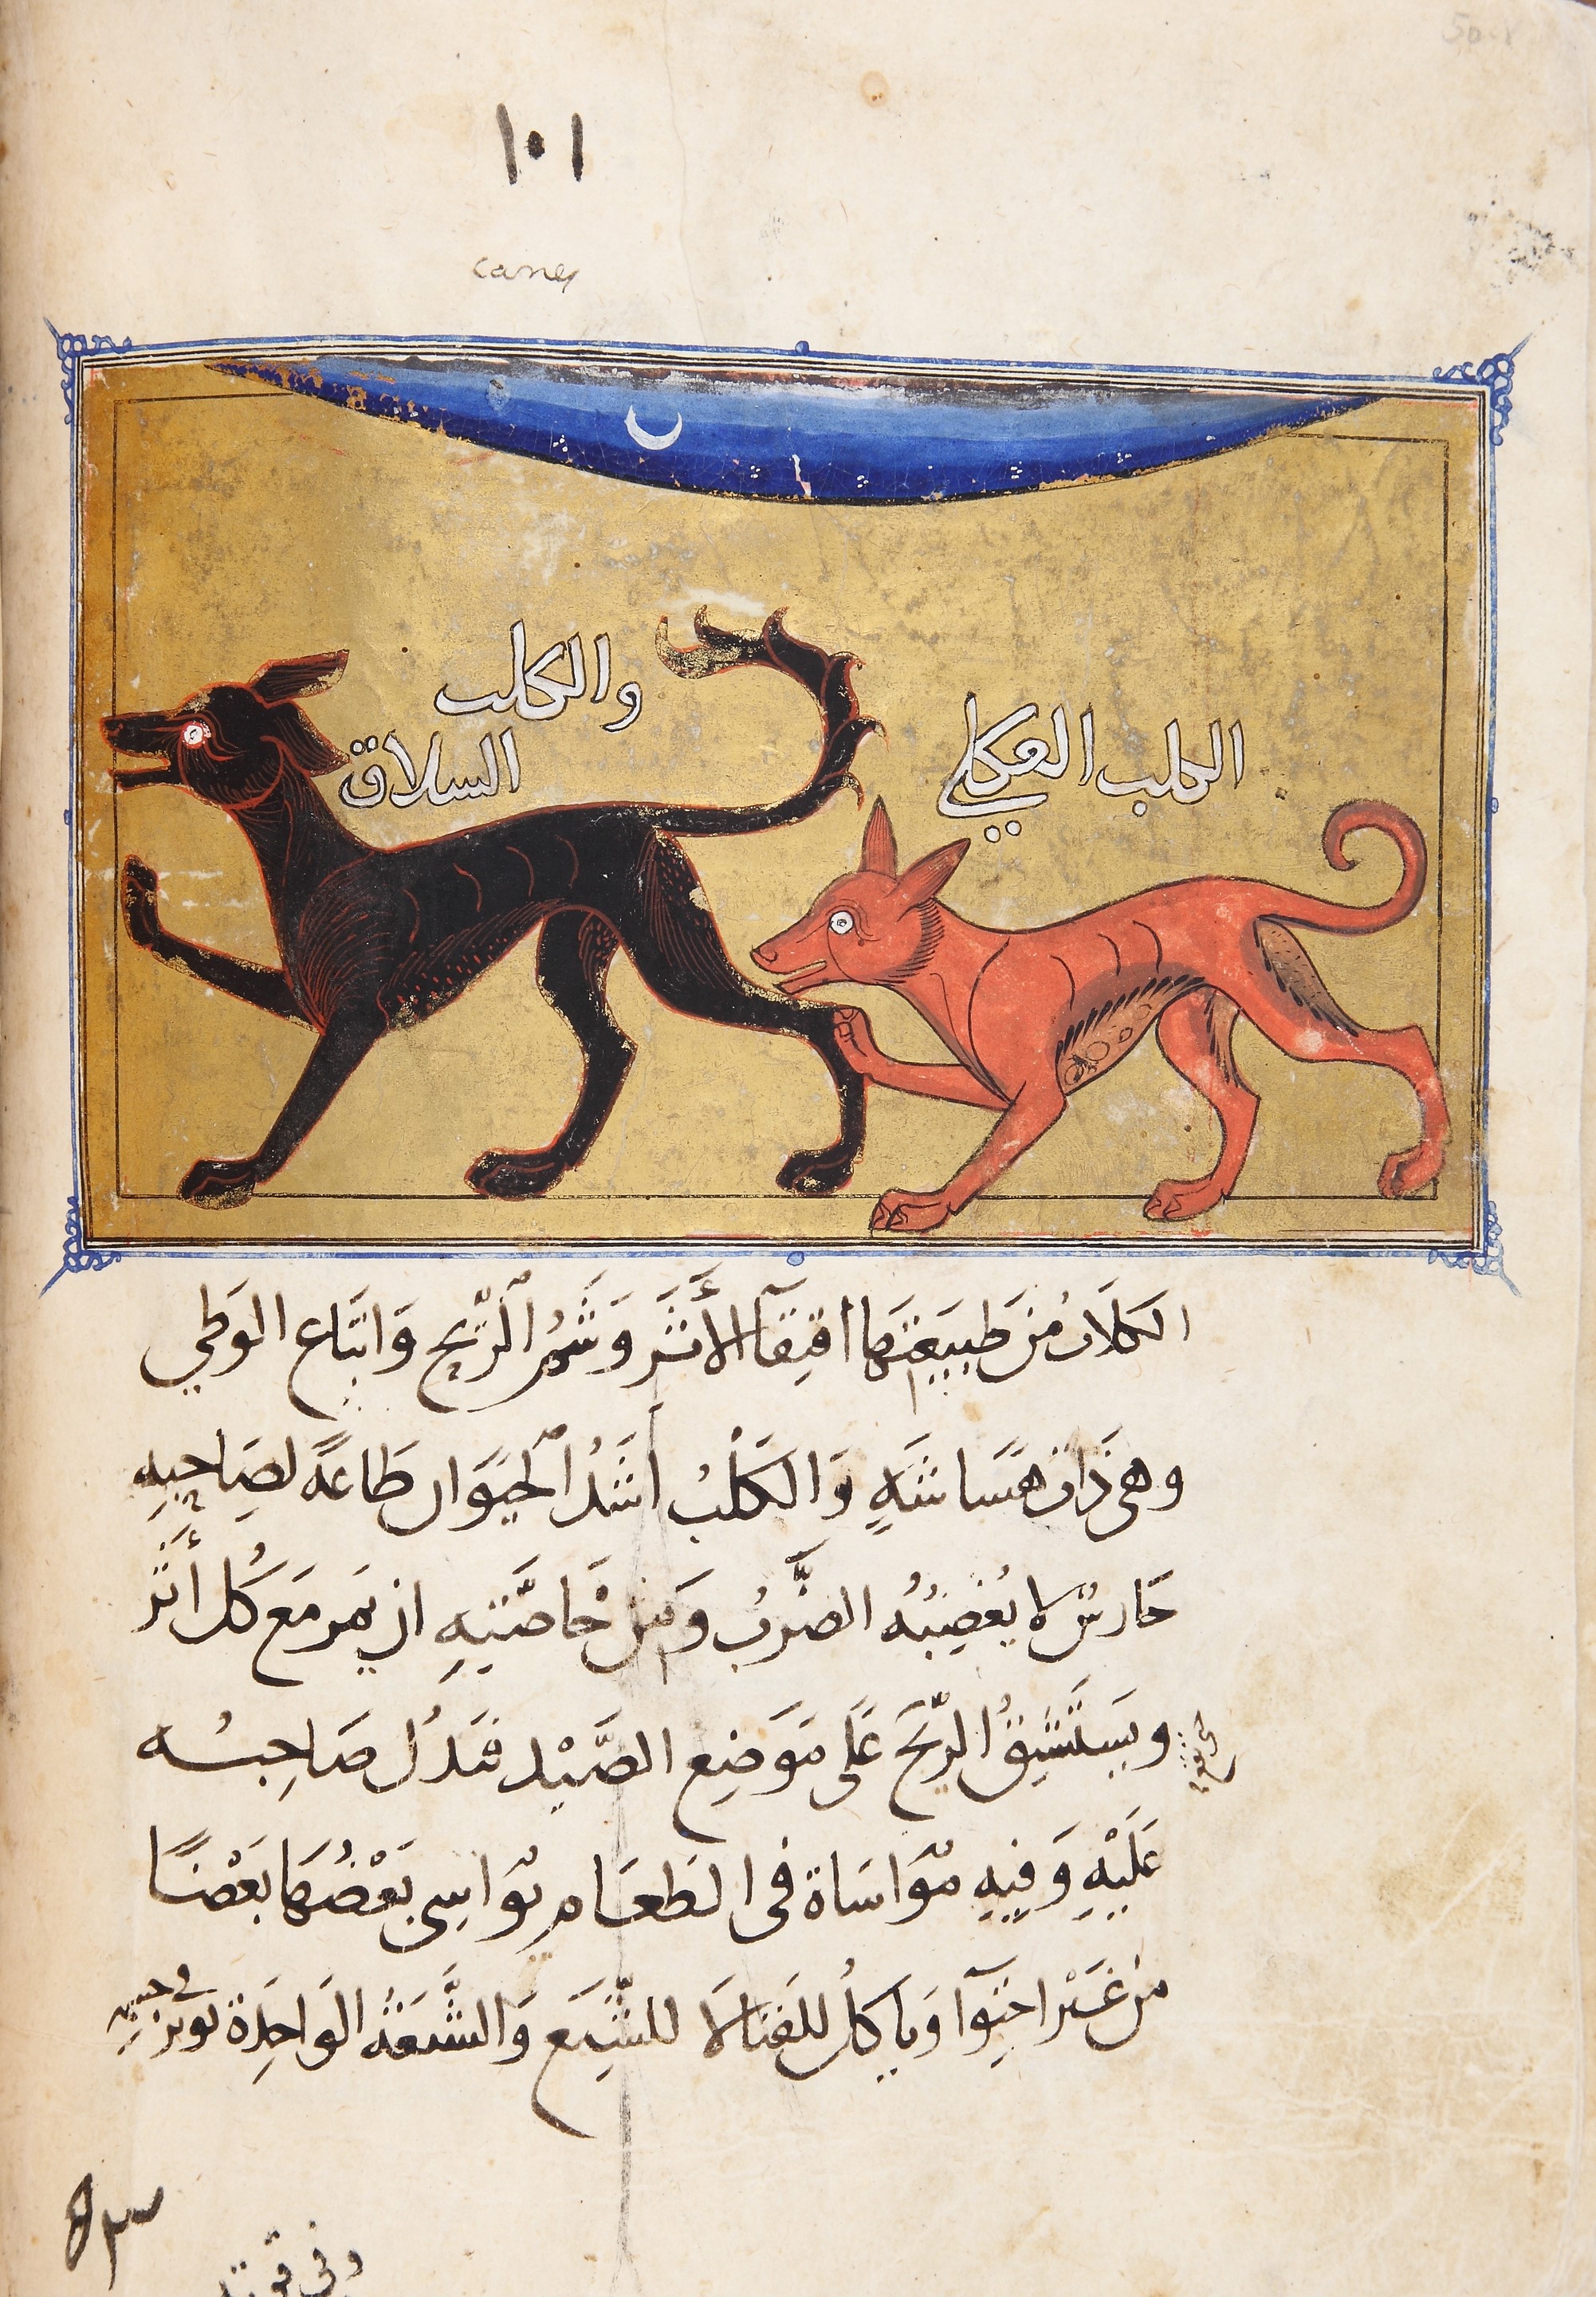 ١٠١
canes
والكلب
السلاقي
الكلب العكلي
الكلاب من طبيعتها اقتفآ الأثر وشم الريح واتباع الوطي
وهي ذات هشاشة والكلب أشد الحيوان طاعة لصاحبه
حارس لا يغضبه الضرب ومن خاصته ان يمر مع كل أثر
ويستنشق الريح على موضع الصيد فتدل صاحبه
عليه وفيه مواساة في الطعام يواسي بعضها بعضا
من غير احتوآ وياكل للغنا لا للشبع والشبعة الواحدة
وفي قوته